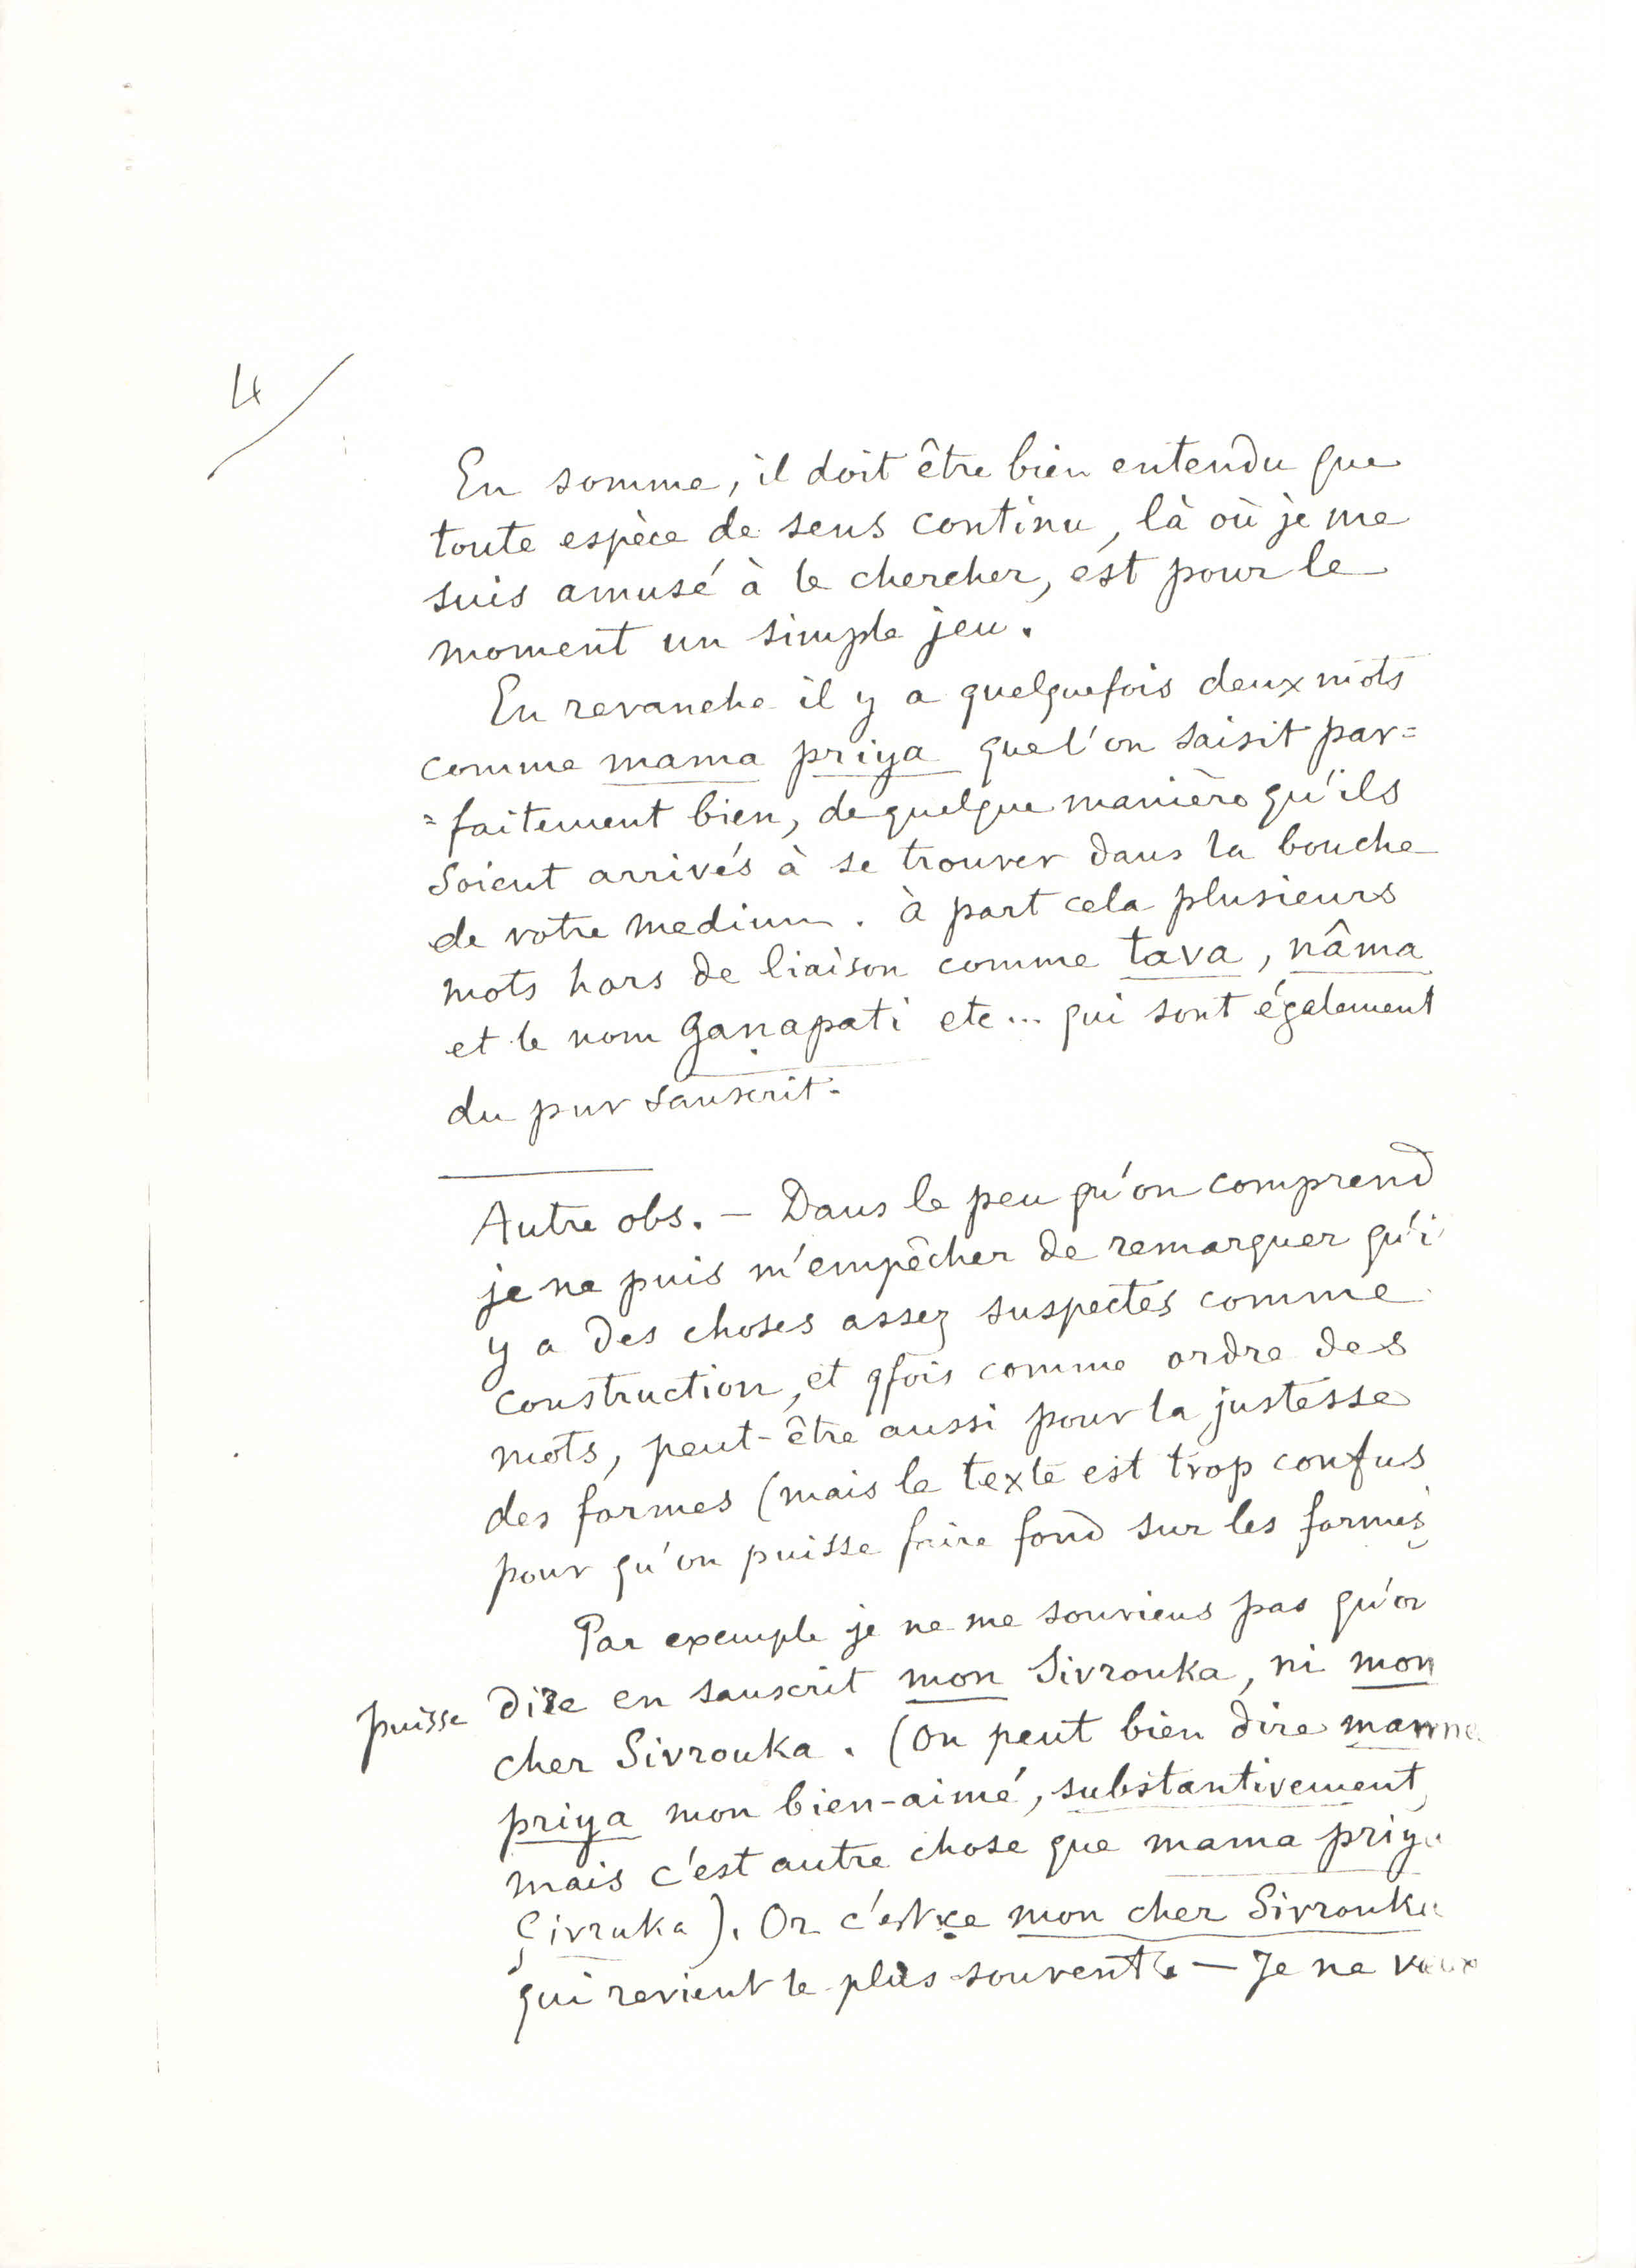 4
En somme, il doit être bien entendu que
toute espèce de sens continu, là où je me
suis amusé à le chercher, est pour le
moment un simple jeu.
En revanche il y a quelquefois deux mots
comme mama priya que l'on saisit par=
=faitement bien, de quelque manière qu'ils
soient arrivés à se trouver dans la bouche
de votre medium. à part cela plusieurs
mots hors de liaison comme tava, nâma
et le nom Gaṇapati etc... qui sont également
du pur sanscrit.
Autre obs. — Dans le peu qu'on comprend
je ne puis m'empêcher de remarquer qu'i
y a des choses assez suspectes comme
construction, et qfois comme ordre des
mots, peut-être aussi pour la justesse
des formes (mais le texte est trop confus
pour qu'on puisse faire fond sur les formes
Par exemple je ne me souviens pas qu'on
puisse dire en sanscrit mon Sivrouka, ni mon
cher Sivrouka. (On peut bien dire mama
priya mon bien-aimé, substantivement,
mais c'est autre chose que mama priya
Çivruka). Or c'est ce mon cher Sivrouka
qui revient le plus souvent. — Je ne veux